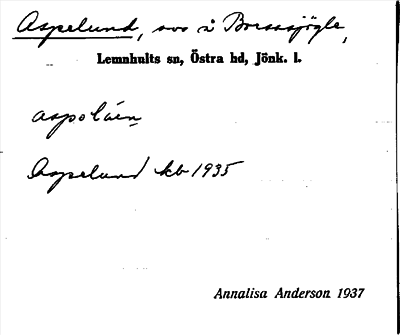 Aspelund, sos i Borssjögle,
Lemnhults sn, Östra hd, Jönk. l.
aspolúen
Aspelund kb 1935
Annalisa Anderson 1937